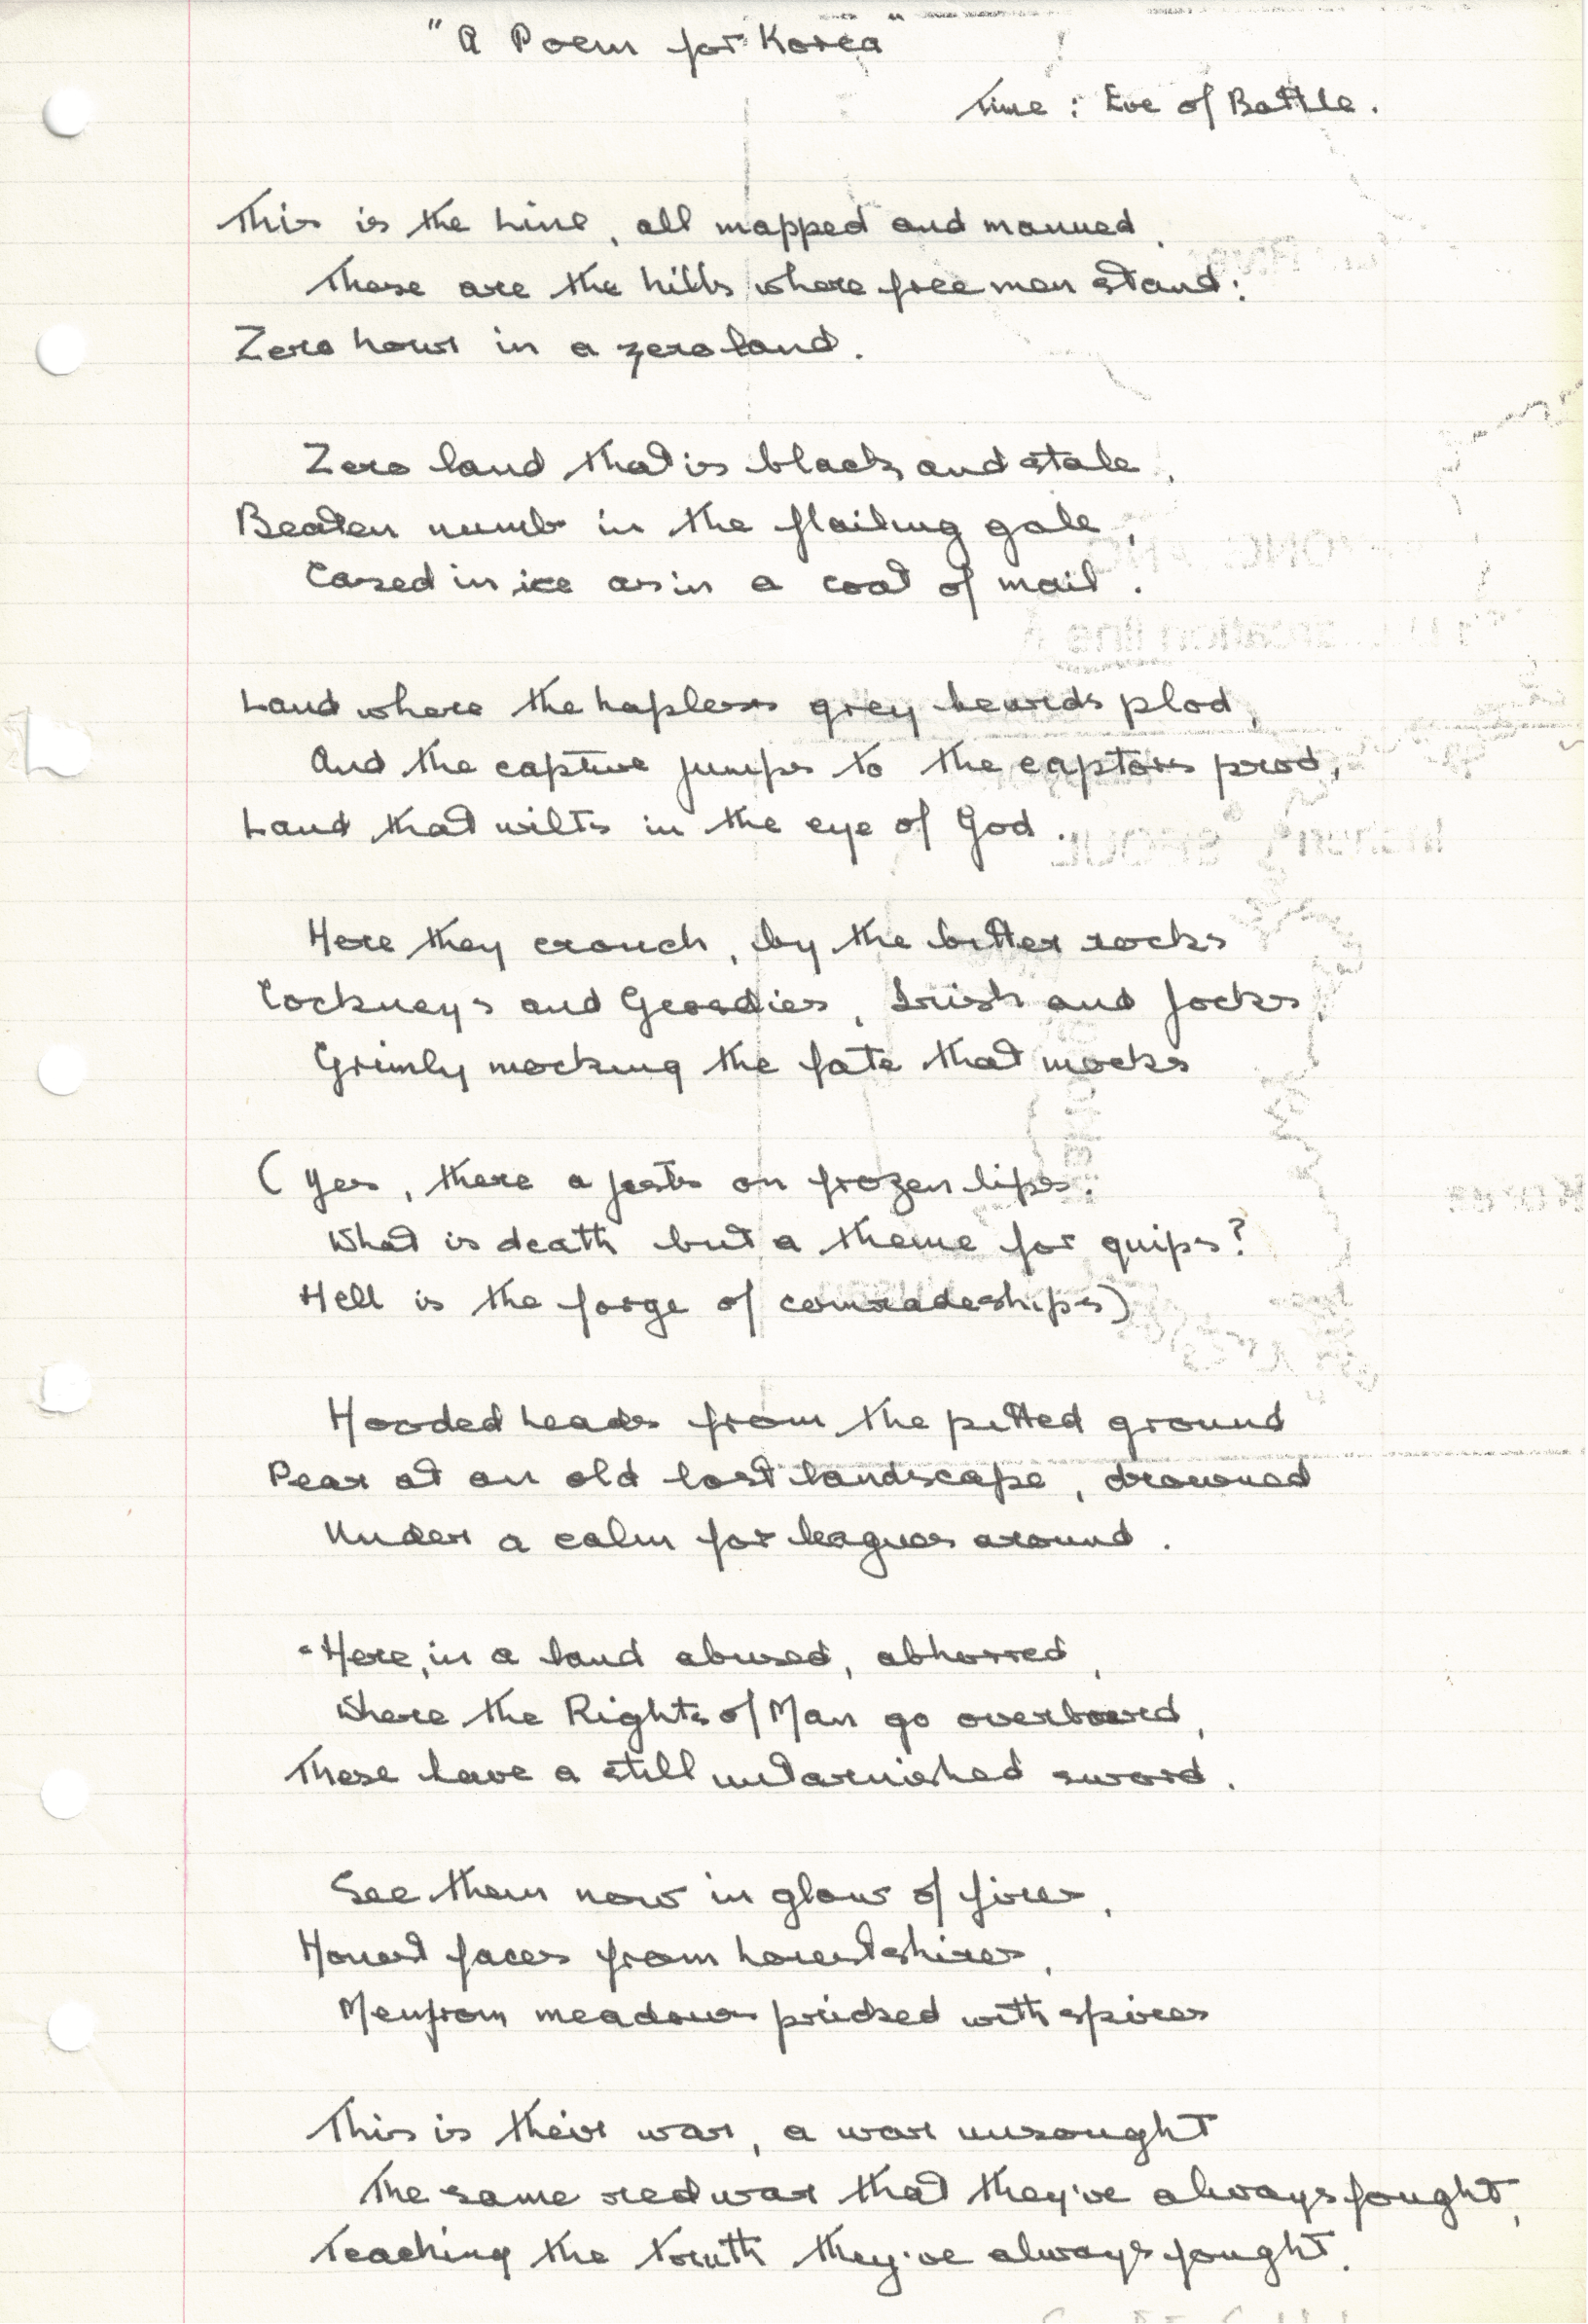 "A Poem for Korea"
Time : Eve of Battle.
This is the Line, all mapped and manned,
These are the hills where free men stand:
Zero hour in a zero land.
Zero land that is black and stale,
Beaten numb in the flailing gale,
Cased in ice as in a coat of mail.
Land where the hapless grey beards plod,
And the captive jumps to the captors prod,
Land that wilts in the eye of God.
Here they crouch, by the bitter rocks
Cockneys and Geordies, Irish and Jocks,
Grimly mocking the fate that mocks
(Yes, there a jests on frozen lips.
What is death but a theme for quips?
Hell is the forge of comradeships)
Hooded heads from the pitted ground
Pear at an old lost landscape, drowned
Under a calm for leagues around.
Here, in a land abused, abhorred,
Where the Rights of Man go overboard,
These have a still untarnished sword.
See them now in glow of fires,
Honest faces from honest shires,
Men from meadows pricked with spires
This is their war, a war unsought
The same red war that they've always fought,
Teaching the truth they've always fought.